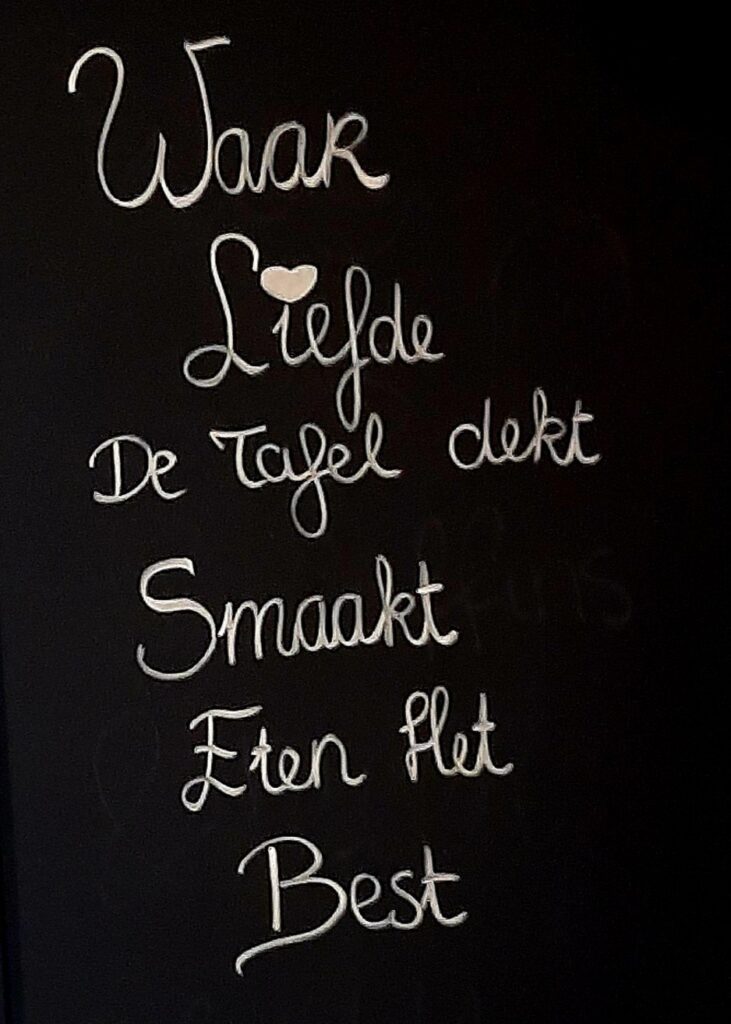 Waar
Liefde
De Tafel dekt
Smaakt
Eten Het
Best